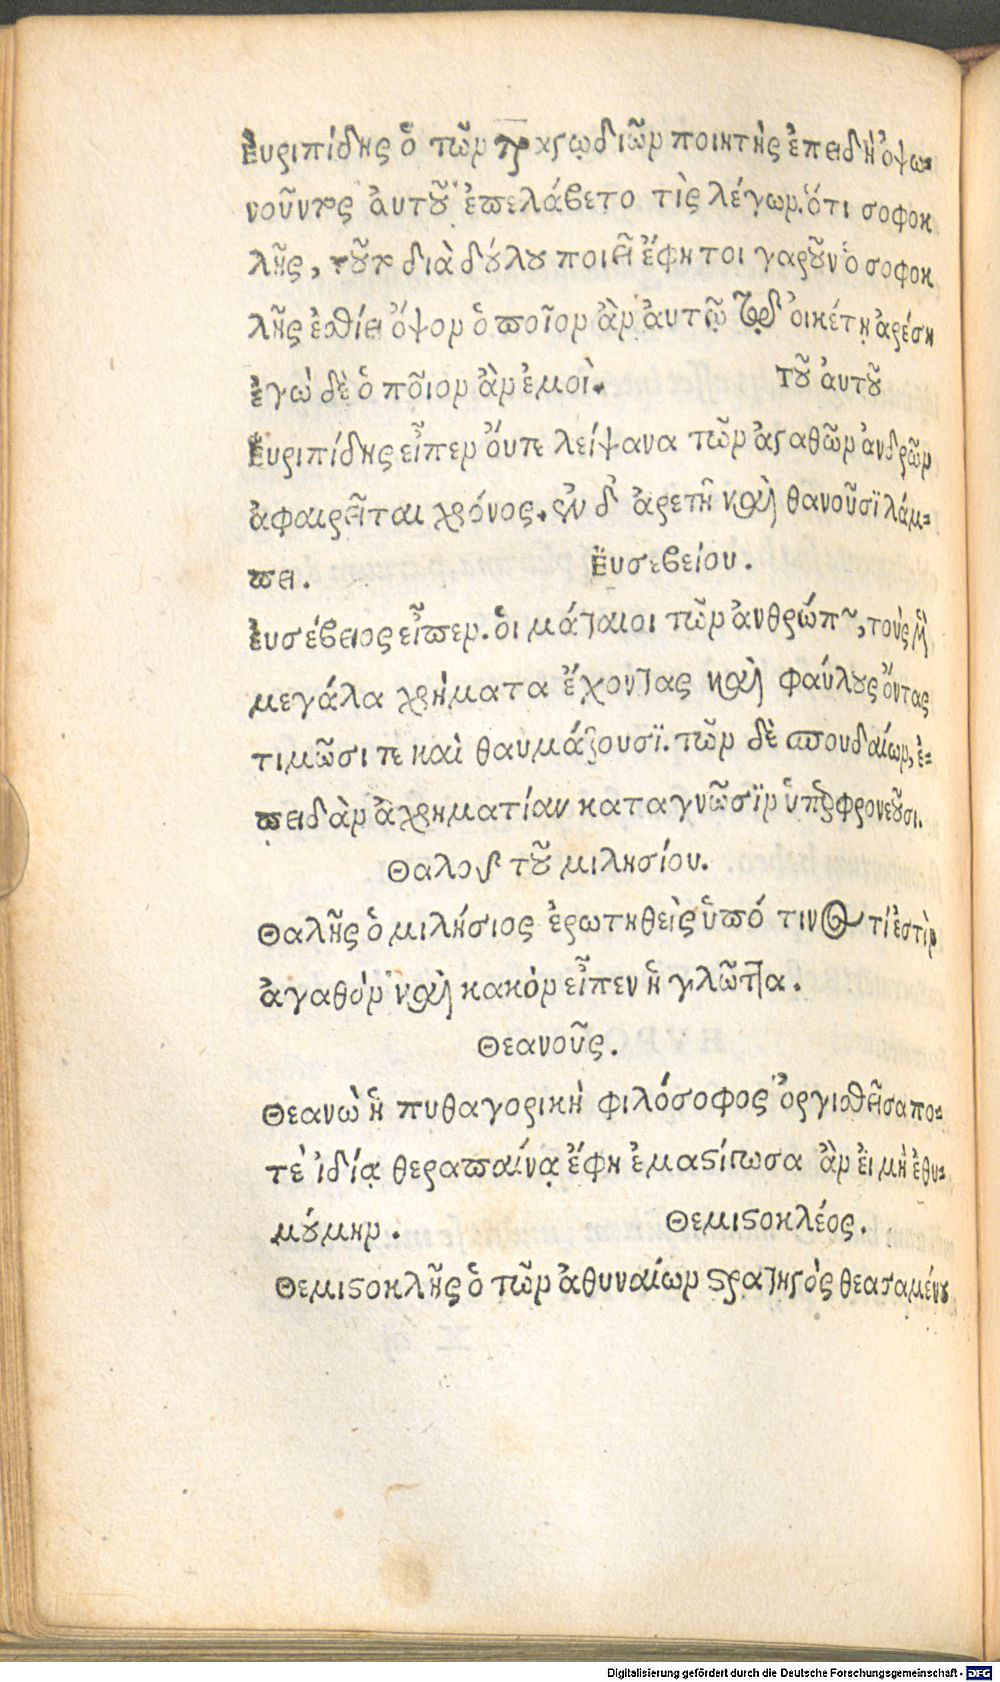 Ἐυριπίδης ὁ τῶν τραγῳδιῶν ποιητὴς ἐπειδὴ ὀψω-
νοῦντος ἀυτοῦ ἐπελάβετο τὶς λέγων. ὅτι σοφοκ
λῆς, τοῦτο διὰ δούλου ποιεῖ ἔφη τοι γαροῦν ὁ σοφοκ
λῆς ἐσθίει ὄψον ὁποῖον ἂν ἀυτοῦ τῷ ὀικέτῃ ἀρέση
ἐγὼ δὲ ὁποῖον ἂν ἐμοὶ. τοῦ ἀυτοῦ
Ἐυριπίδης εἶπεν ὄυτε λείψανα τῶν ἀγαθῶν ἀνδρῶν
ἀφαιρεῖται χρόνος. ἡ δ' ἀρετὴ καὶ θανοῦσϊ λάμ-
πει. Ἐυσεβείου.
Ἐυσέβειος εἶπεν. ὁι μάταιοι τῶν ἀνθρώπων, τοὺς μὲν
μεγάλα χρήματα ἔχοντας καὶ φαύλους ὄντας
τιμῶσι τε καὶ θαυμάζουσϊ. τῶν δὲ σπουδαίων, ἐ-
πειδὰν ἀχρηματίαν καταγνῶσϊν ὑπερφρονεῦσι.
Θαλοῦ τοῦ μιλησίου.
Θαλῆς ὁ μιλήσιος ἐρωτηθεὶς ὑπό τινος τί ἐστὶν
ἀγαθὸν καὶ κακὸν εἶπεν ἡ γλῶττα.
Θεανοῦς.
Θεανὼ ἡ πυθαγορικὴ φιλόσοφος ὀργισθεῖσα πο-
τὲ ἰδίᾳ θεραπαίνᾳ ἔφη ἐμαστίγωσα ἂν ἐι μὴ ἐθυ-
μούμην. Θεμιστοκλέος.
Θεμιστοκλῆς ὁ τῶν ἀθυναίων στρατηγὸς θεασαμένου
Digitalisierung gefördert durch die Deutsche Forschungsgemeinschaft - DFG